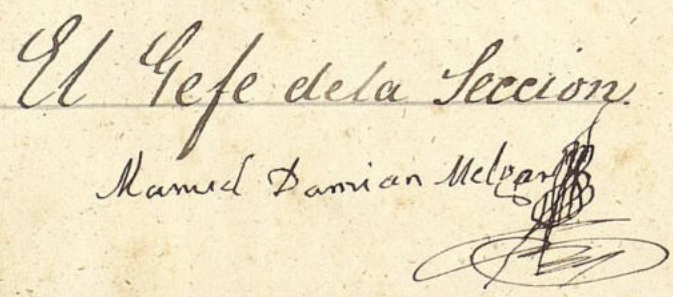 El Gefe dela Seccion.
Manuel Damian Melgar